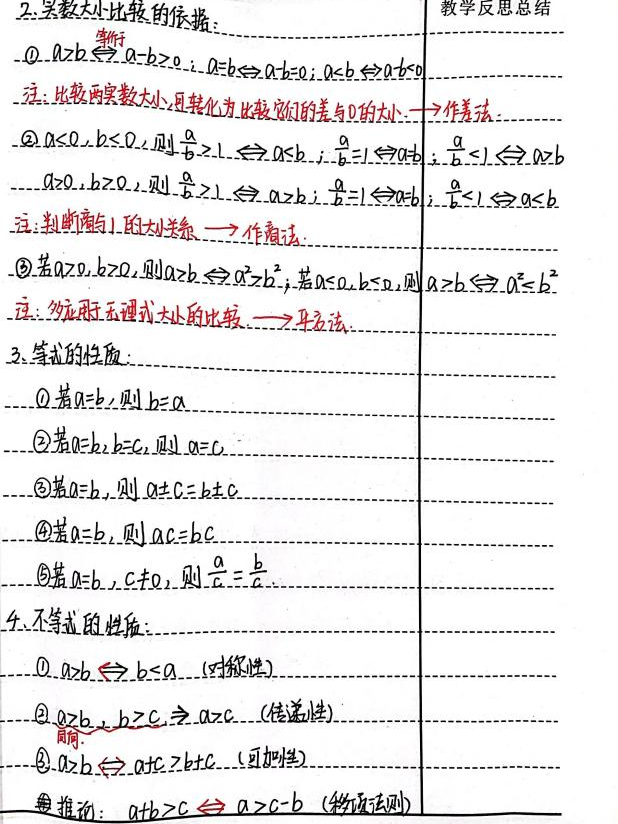 教学反思总结
2.实数大小比较的依据:
等价于
① a>b⇔a-b>0;a=b⇔a-b=0;a<b⇔a-b<0
注:比较两实数大小,可转化为比较它们的差与0的大小.→作差法.
②a<0,b<0,则a/b>1⇔a<b;a/b=1⇔a=b;a/b<1⇔a>b
a>0,b>0,则a/b>1⇔a>b;a/b=1⇔a=b;a/b<1⇔a<b
注:判断商与1的大小关系→作商法.
③若a>0,b>0,则a>b⇔a²>b²;若a<0,b<0,则a>b⇔a²<b²
注:多应用于无理式大小的比较.→平方法.
3、等式的性质:
①若a=b,则b=a
②若a=b,b=c,则a=c
③若a=b,则a±c=b±c
④若a=b,则ac=bc
⑤若a=b,c≠0,则a/c=b/c.
4、不等式的性质:
① a>b⇔b<a (对称性)
② a>b,b>c⇒a>c (传递性)
同向.
③ a>b⇔a+c>b+c (可加性)
推论: a+b>c⇔a>c-b (移项法则)